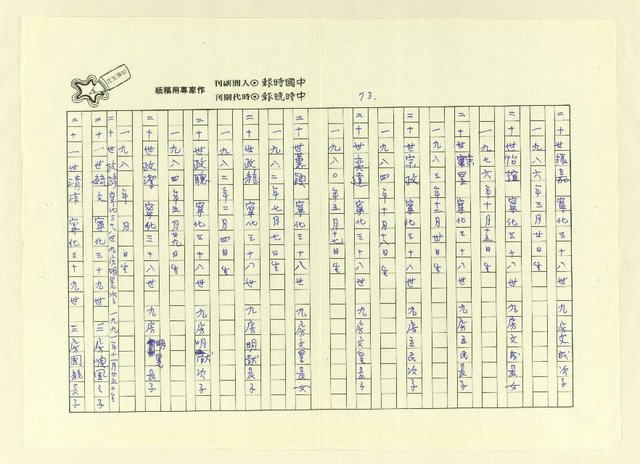 中國時報⊙人間副刊
中時晚報⊙時代副刊
作家專用稿紙
73.
二十世 嘉 寧化三十八世 九房文 長子
一九八六年三月廿日生
二十世怡誼 寧化三十八世 九房文 長女
一九七六年十月十五日生
二十世 星 寧化三十八世 九房立民長子
一九八三年十二月廿日生
二十世宗政 寧化三十八世 九房立民次子
一九八四年十月十八日生
二十世奕達 寧化三十八世 九房文星長子
一九八〇年五月十七日生
二十世蕙穎 寧化三十八世 九房文星長女
一九八二年七月七日生
二十世政龍 寧化三十八世 九房明 長子
一九八二年二月四日生
二十世政聰 寧化三十八世 九房明 次子
一九八四年五月廿九日生
二十世政潔 寧化三十八世 九房明晃長子
一九八 年 月 日生
二十世政 寧化三十八世九房明晃次子 一九九一年十一月廿五日生
二十一世 文 寧化三十九世 三房 國之子
二十一世清 寧化三十九世 三房國龍長子